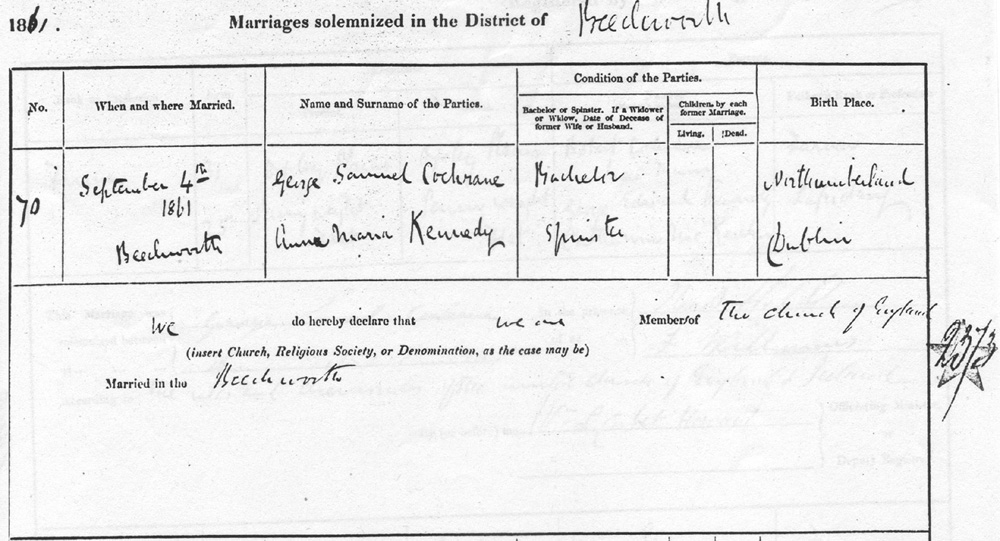 1861.
Marriages solemnized in the District of Beechworth
No.
When and where Married.
Name and Surname of the Parties.
Condition of the Parties.
Bachelor or Spinster. If a Widower
or Widow, Date of Decease of
former Wife or Husband.
Children, by each
former Marriage.
Living.
Dead.
Birth Place.
70
September 4th
1861
Beechworth
George Samuel Cochrane
Anna Maria Kennedy
Bachelor
Spinster
Northumberland
Dublin
We do hereby declare that we are Member/of The Church of England
(insert Church, Religious Society, or Denomination, as the case may be)
Married in the Beechworth
2373